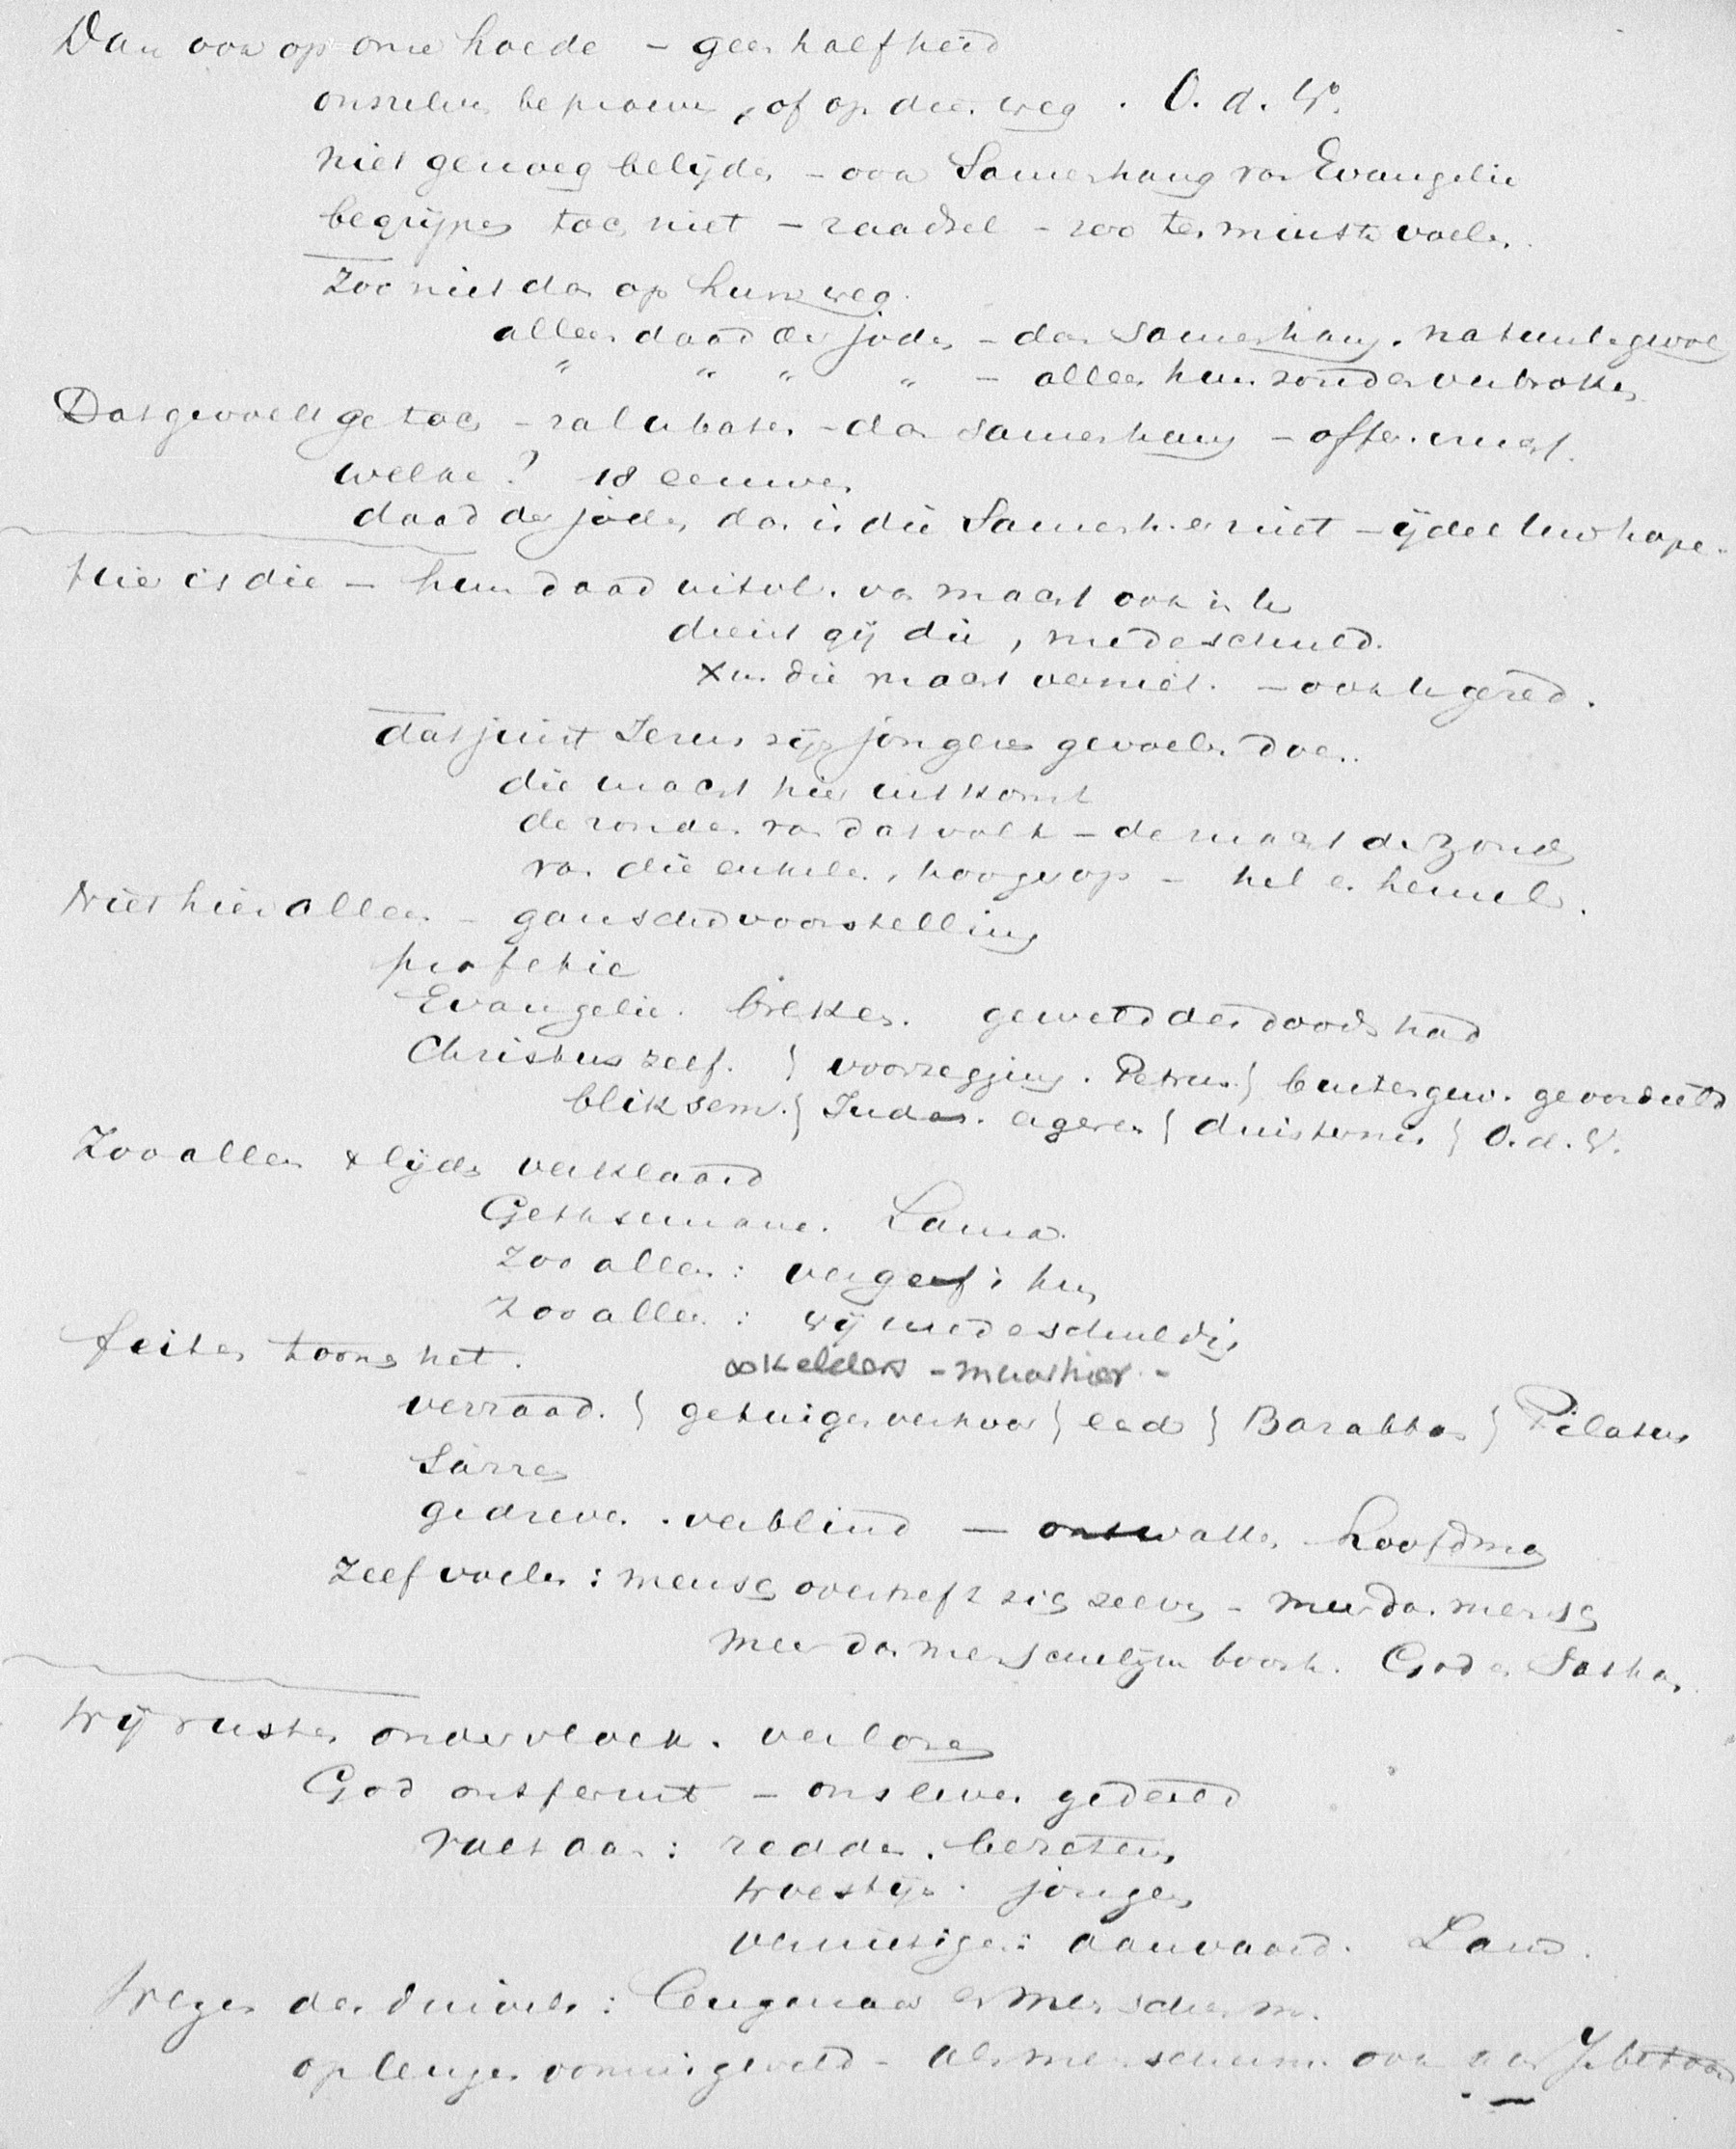 Dan ook op onze hoede - geen halfheid
onszelven beproeven, of op dien weg. O. d. W.
niet genoeg belijden - ook Samenhang van Evangelie
begrijpen toch niet - raadsel - zoo ten minste voelen.
Zoo niet dan op hun weg.
alleen daad der joden - dan samenhang. natuurlijk gevoel
" " " " - alleen hun zonde verbroken
Dat gevoelt ge toch - zal u baten - dan samenhang - offer
welke? 18 eeuwen
daad der joden, dan is die Samenh. er niet - ijdel uw hope.
Hier is die - hun daad uitvl. van macht ook in u
dient gij die, medeschuld.
X en die macht verniet. - ook u gered.
dat juist Jezus zijn jongeren gevoelen doen.
die macht hier uitkomt
de zonde van dat volk - de macht der zonde
van die enkelen, hooger op - hel en hemel.
Niet hier alleen - gansche voorstelling
profetie
Evangelie. breken. geweld des doods had
Christus zelf. } voorzegging. Petrus } buitengew. geoordeeld
bliksem. } Judas. ageren } duisternis } O. d. W.
Zoo alleen X lijden verklaard
Gethsemane. Lama.
Zoo alleen: vergeef: hen
Zoo alleen: wij medeschuldig
feiten toonen het.
ook elders - maar hier -
verraad. } getuigenverhoor } eed } Barabbas } Pilatus
Sarren
gedreven. verblind - ontwaken. hoofdman
Zelf voelen: mensch overtreft zich zelven - meer dan mensch
meer dan menschelijke boosh. God en Sathan.
Wij rusten onder vloek. verloren
God ontfermt - ons leven gedeeld
vast aan: redden. berchten
woestijn. jongen
vernietigen: aanvaard. Lam.
Wegen des duivels: leugenaar en menschenm.
op leugen vonnis geveld - als menschenm. ook aan J. betoond